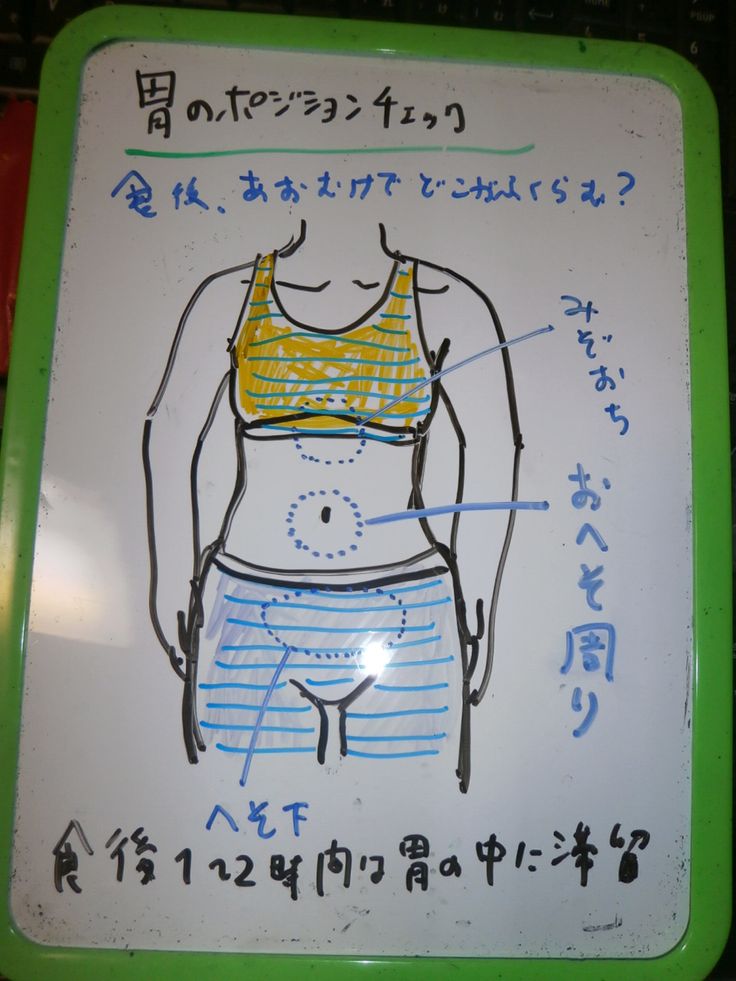 胃のポジションチェック
食後、あおむけでどこがふくらむ?
みぞおち
おへそ周り
へそ下
食後1~2時間内は胃の中に滞留